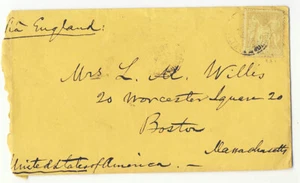 via England:
Mrs L. M. Willis
20 Worcester Square 20
Boston
Massachusetts
United States of America. —